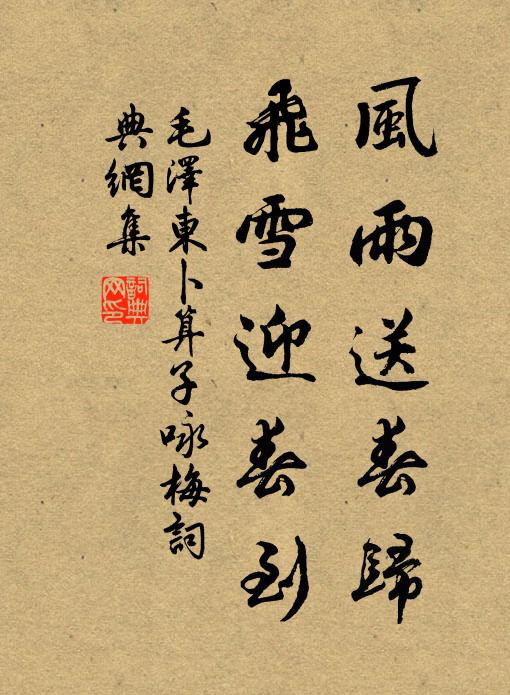 風雨送春歸
飛雪迎春到
毛澤東卜算子咏梅詞
典網集
詞典
网印